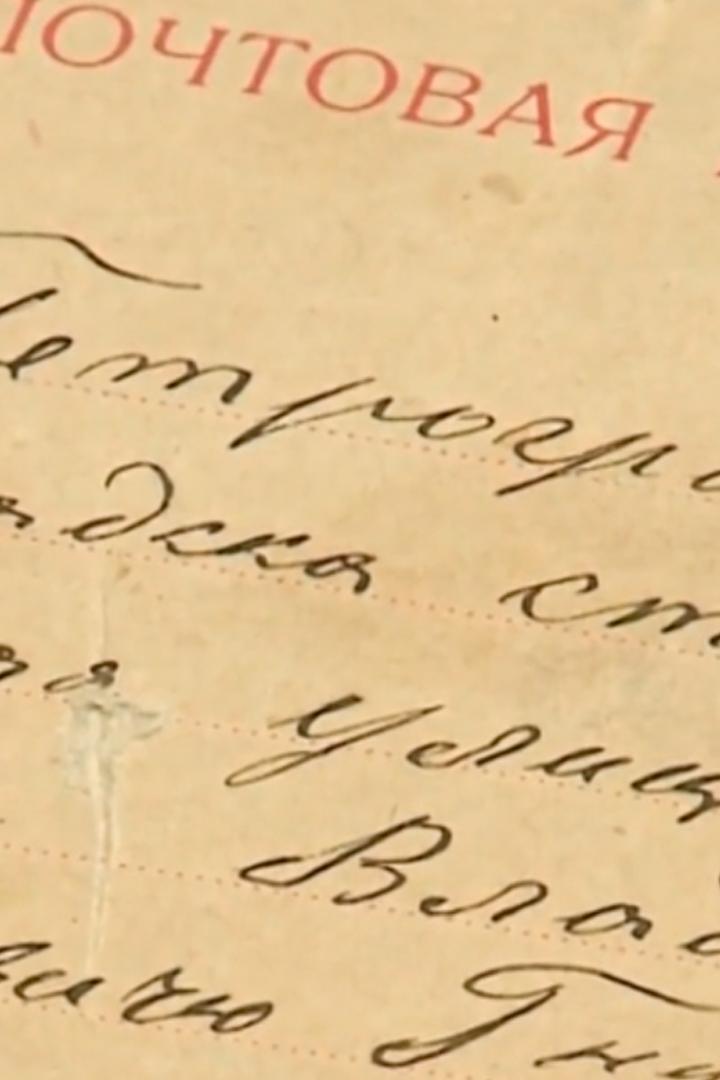 ПОЧТОВАЯ
Петрогра
адска ст
ая улиц
Влад
вичу Гн